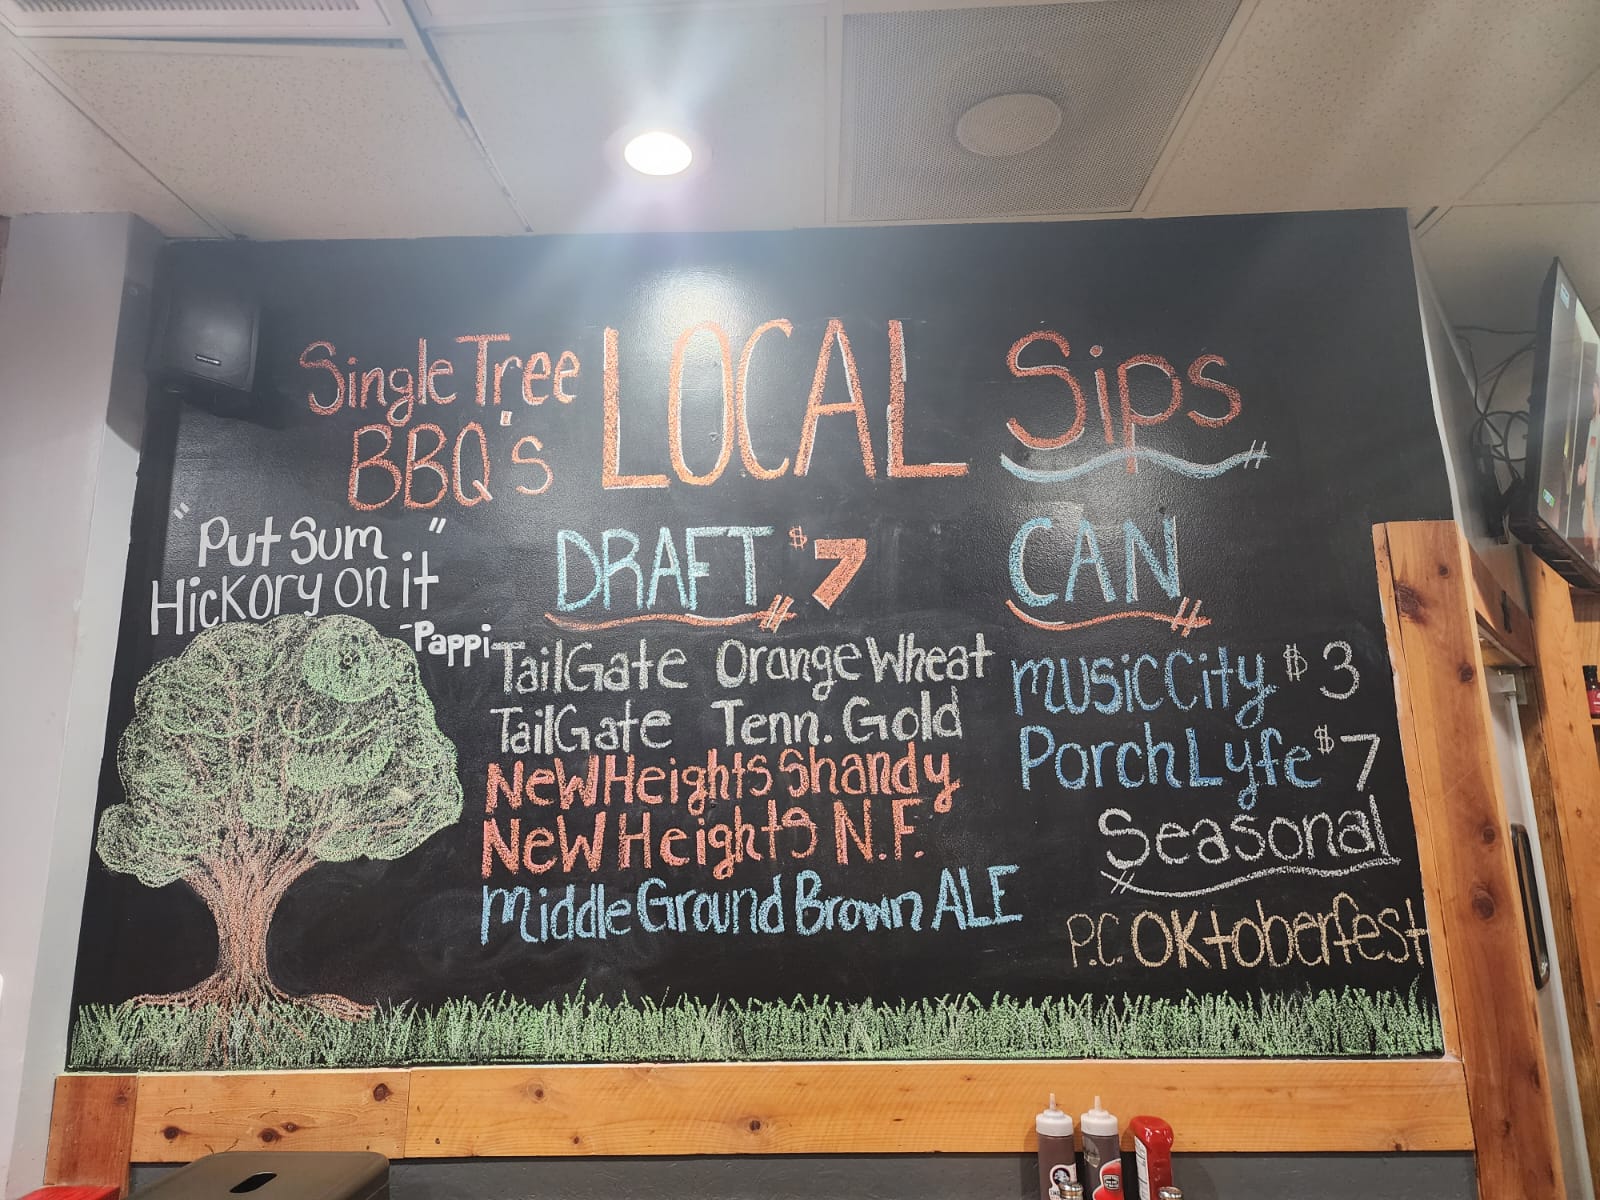 Single Tree
BBQ's
LOCAL Sips
"Put Sum
Hickory on it"
-Pappi
DRAFT $7
TailGate Orange Wheat
TailGate Tenn. Gold
New Heights Shandy
New Heights N.F.
Middle Ground Brown ALE
CAN
Music City $3
Porch Lyfe $7
Seasonal
P.C. Oktoberfest